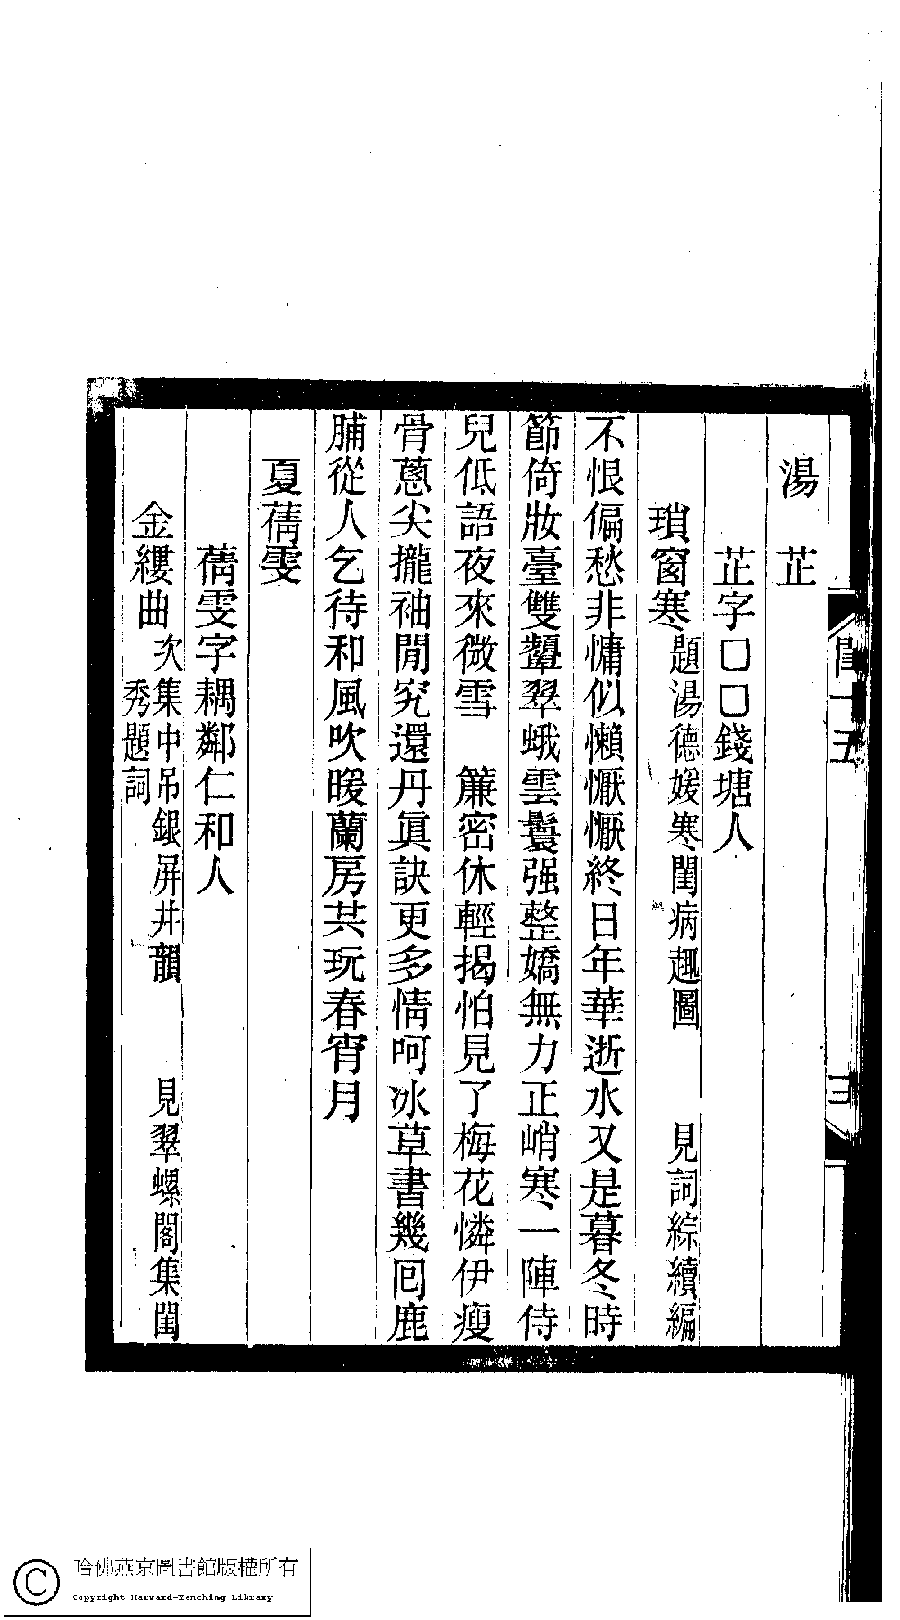 湯　芷
芷字□□錢塘人
瑣窗寒 題湯德媛寒閨病趣圖　見詞綜續編
不恨偏愁非慵似懶懨懨終日年華逝水又是暮冬時
節倚妝臺雙顰翠蛾雲鬟强整嬌無力正峭寒一陣侍
兒低語夜來微雪　簾密休輕揭怕見了梅花憐伊瘦
骨蔥尖攏袖閒究還丹眞訣更多情呵冰草書幾囘鹿
脯從人乞待和風吹暖蘭房共玩春宵月
夏蒨雯
蒨雯字耦鄰仁和人
金縷曲 次集中吊銀屏井韻　見翠螺閣集閨
秀題詞
閨十五
三
哈佛燕京圖書館版權所有
Copyright Harvard-Yenching Library